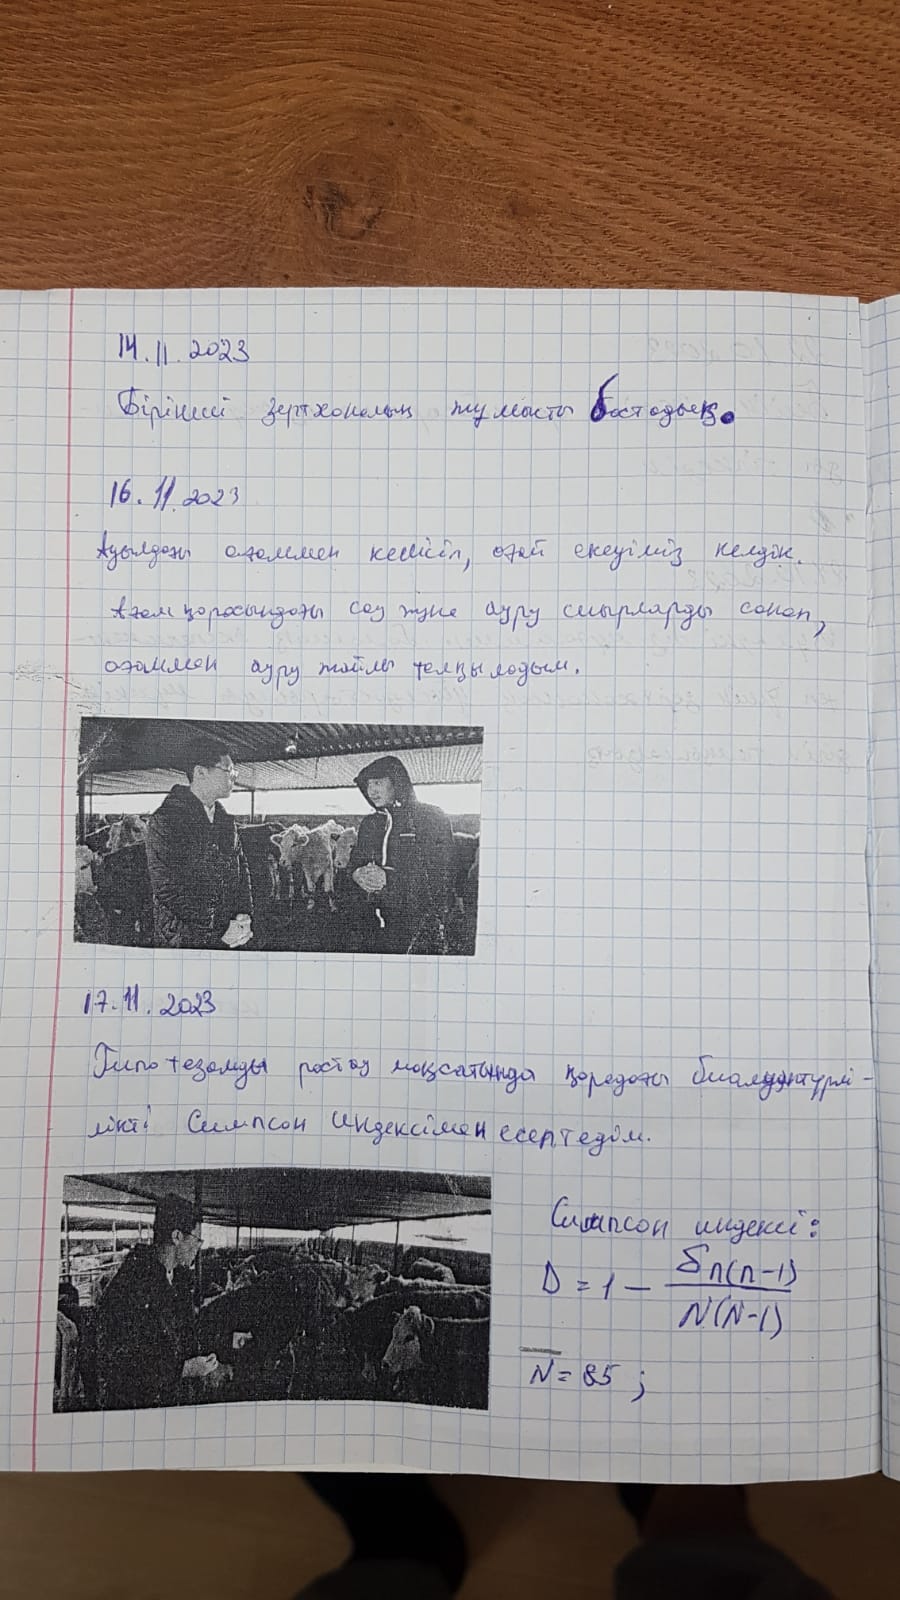 14.11.2023
Бірінші зертханалық жұмысты бастадық.
16.11.2023
Ауылдағы ағаммен кешігіп, ағай екеуіміз келдік.
Ағам қорасындағы сау және ауру сиырларды санап,
ағаммен ауру жайлы талқыладым.
17.11.2023
Гипотезамды растау мақсатында қорадағы биоалуантүрлі-
лікті Симпсон индексімен есептедім.
Симпсон индексі:
D = 1 - Σn(n-1)
N(N-1)
N = 85 ;